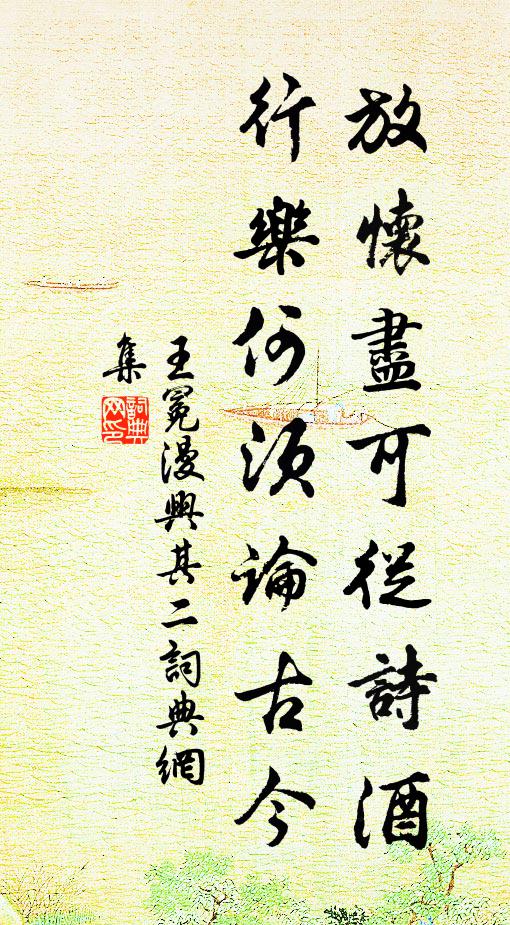 放懷盡可從詩酒
行樂何須論古今
王冕漫興其二詞典網
集
詞典網印